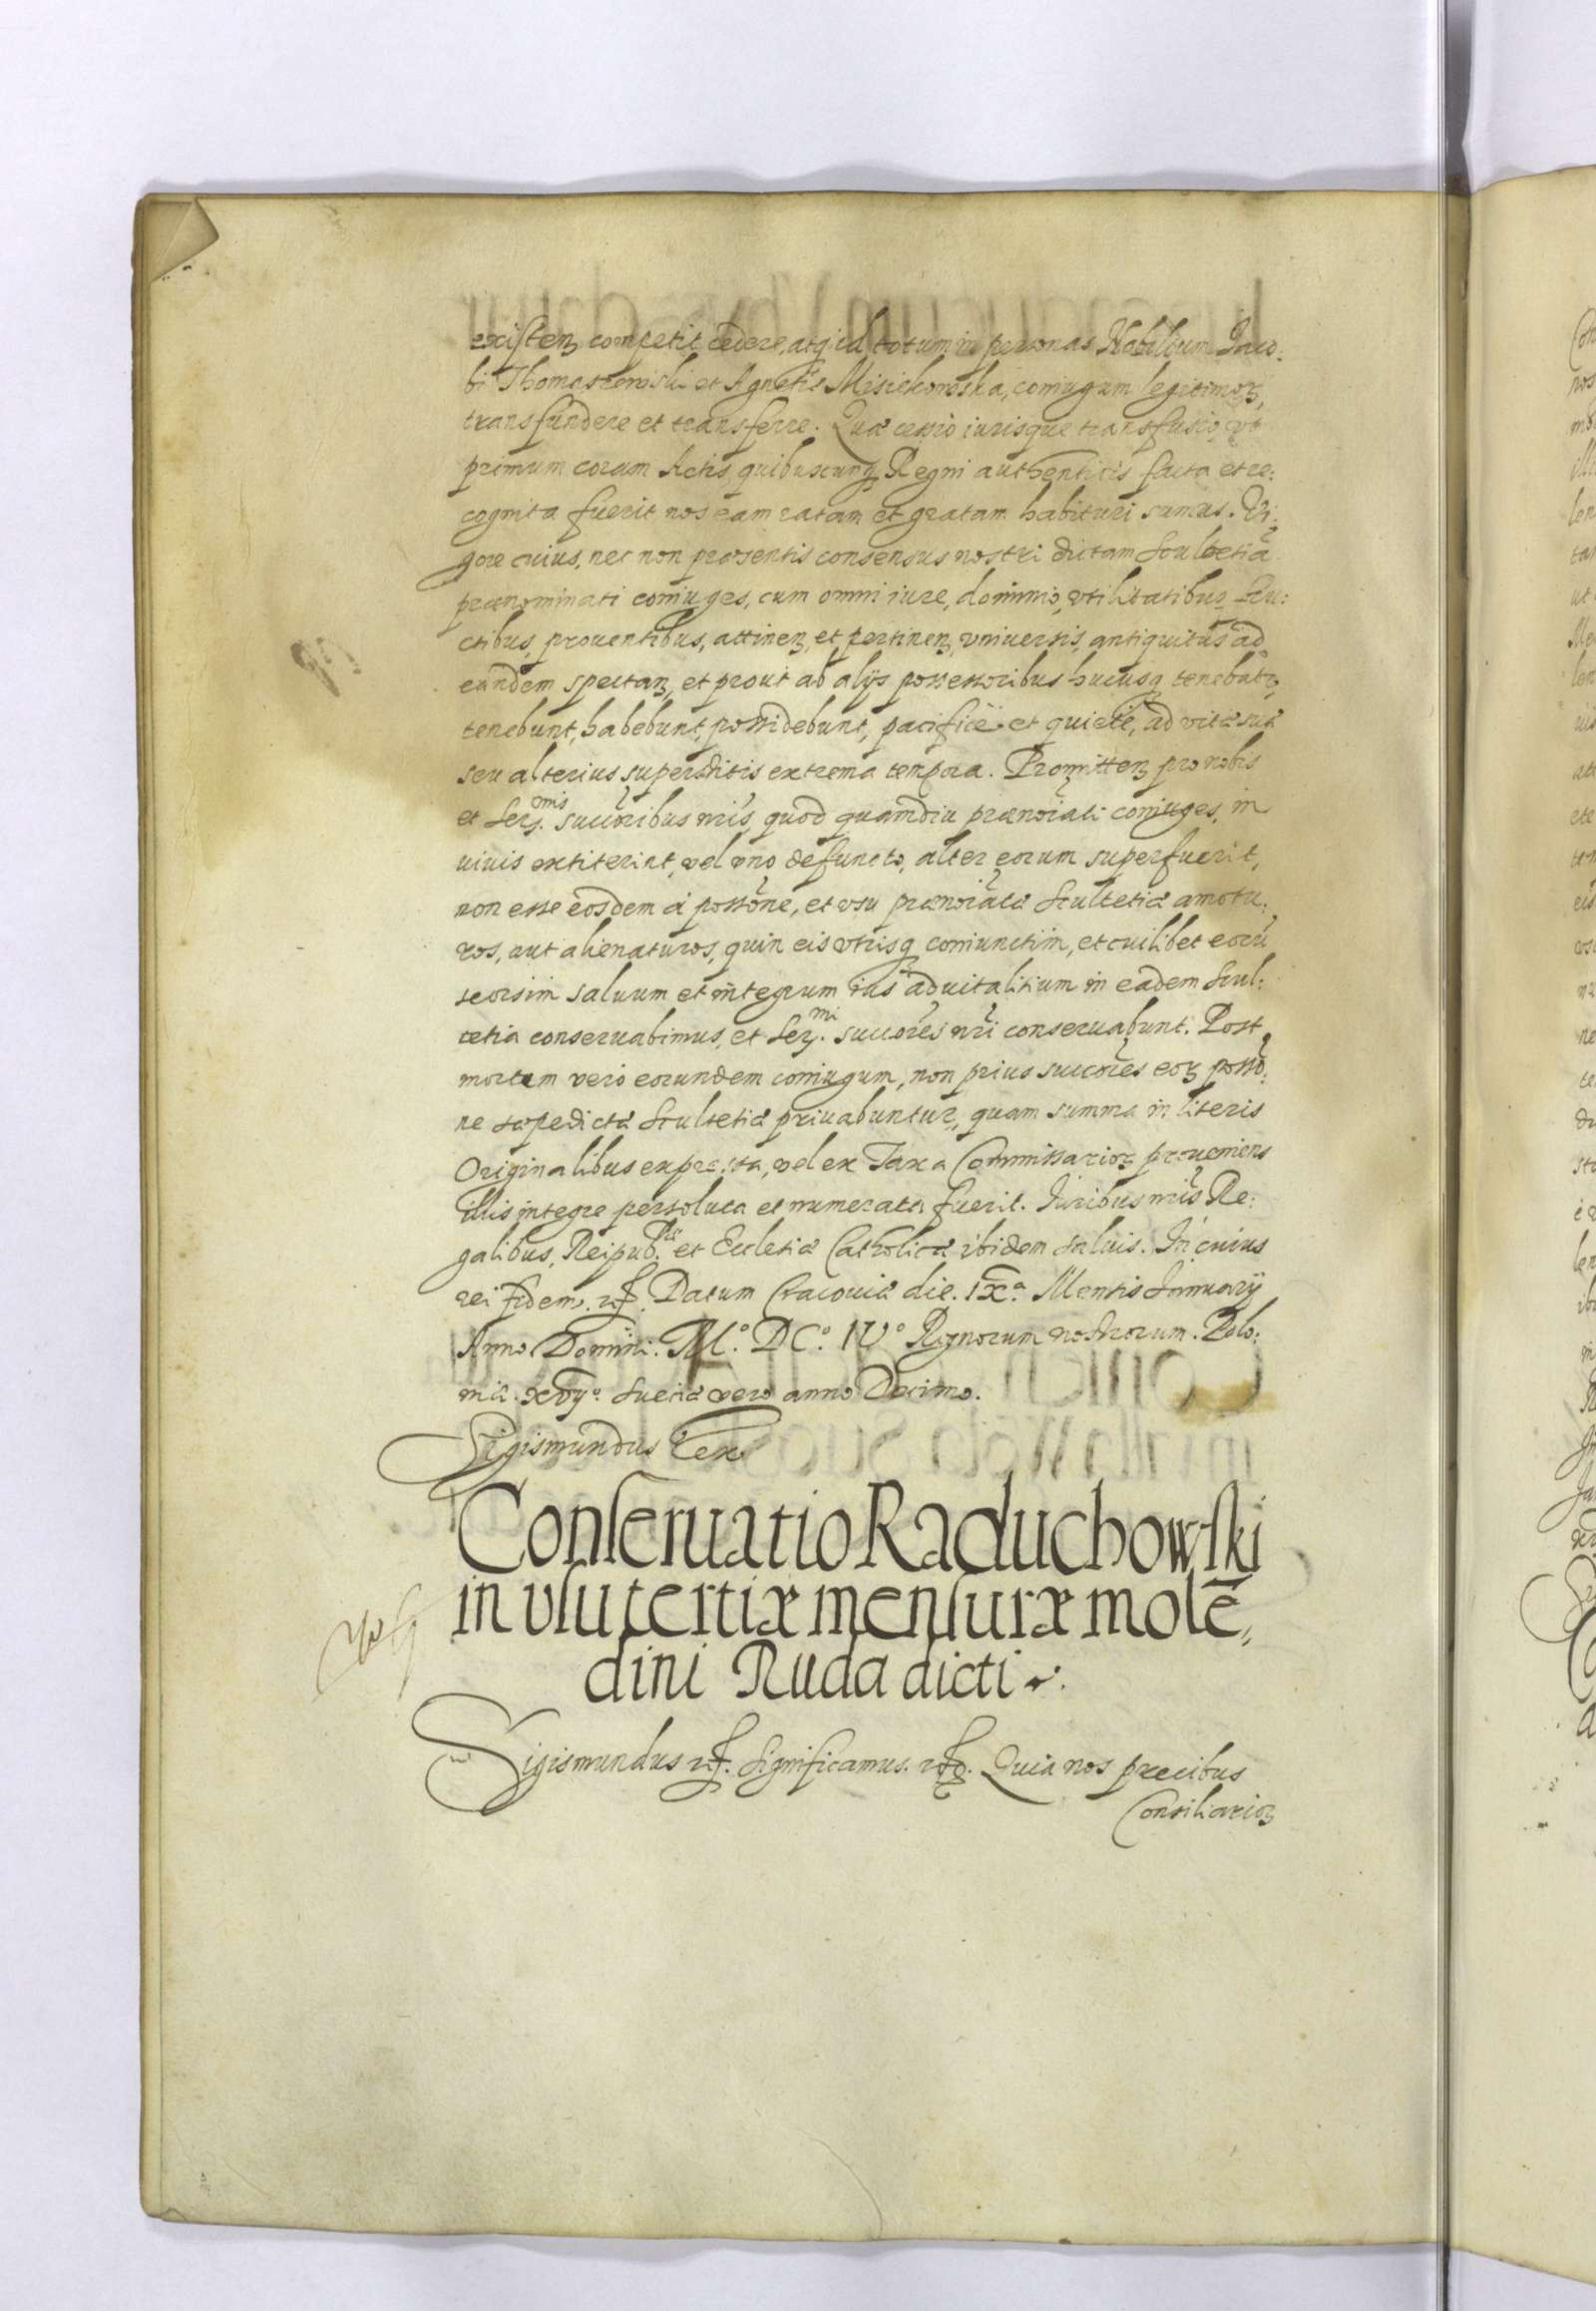 existen competit cedere, atq id totum in personas Nobilium Iaco:
bi Thomaszewski et Agnetis Misiekowska, coniugum legitimor,
transfundere et transferre. Quæ cessio iurisque transfusio, vt
primum coram Actis quibuscunq Regni authenticis facta et re:
cognita fuerit nos eam ratam et gratam habituri sumus. Vi:
gore cuius, nec non præsentis consensus nostri dictam Scultetiã
prænominati coniuges, cum omni iure, dominio, vtilitatibus, Fru:
ctibus, prouentibus, attinen, et pertinen, vniuersis, antiquitus ad
eandem spectan, et prout ab alijs possessoribus hucusq tenebatr,
tenebunt, habebunt, possidebunt, pacificè et quietè, ad vitæ suæ
seu alterius superstitis extrema tempora. Promitten pro nobis
et Ser.mis succoribus nris, quod quamdiu prænoiati coniuges, in
viuis extiterint, vel vno defuncto, alter eorum superfuerit,
non esse eosdem à possone, et vsu prænoiatæ Scultetiæ amotu:
ros, aut alienaturos, quin eis vtrisq coniunctim, et cuilibet eorũ
seorsim saluum et integrum ius aduitalitium in eadem Scul:
tetia conseruabimus, et Ser.mi succores nri conseruabunt. Post
mortem vero eorundem coniugum, non prius succores eor posso:
ne sæpedictæ Scultetiæ priuabuntur, quam summa in literis
Originalibus expressa, vel ex Taxa Commissarior proueniens
illis integre persoluta et numerata fuerit. Iuribus nris Re:
galibus, Reipub.cæ et Ecclesiæ Catholicæ ibidem saluis. In cuius
rei fidem. etc. Datum Cracouiæ die. IXa. Mensis Ianuarij
Anno Domini. Mo. DCo. IVo Regnorum nostrorum. Polo:
niæ. xvijo. Sueciæ vero anno Decimo.
Sigismundus Rex
Conseruatio Raduchowski
in vsu tertiæ mensuræ molẽ„
dini Ruda dicti
Sigismundus etc. Significamus. etc. Quia nos precibus
Consiliarior